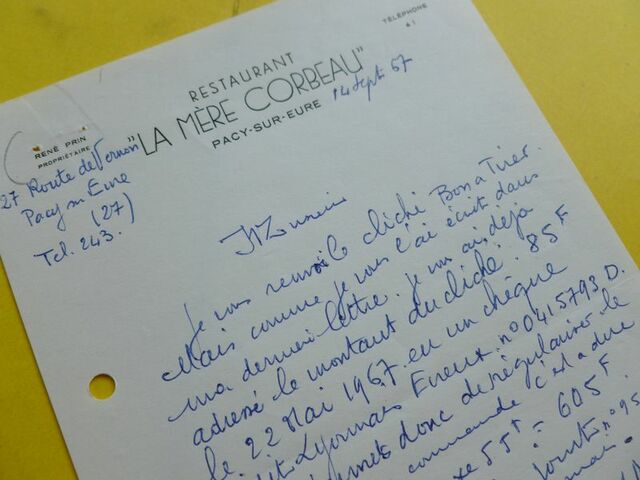 TÉLÉPHONE
41
RESTAURANT
"LA MÈRE CORBEAU"
PACY-SUR-EURE
RENÉ PRIN
PROPRIÉTAIRE
14 sept. 67
27 Route de Vernon
Pacy sur Eure
(27)
Tel. 243.
Monsieur
Je vous renvoie le cliché Bon a Tirer.
Mais comme je vous l'ai écrit dans
ma dernière lettre. Je vous ai déjà
adressé le montant du cliché : 85 F
le 22 Mai 1967 en un chèque
Lyonnais Evreux. n° 0415793 D.
donc de régulariser le
commande c'est a dire
55 F = 605 F.
n° 95